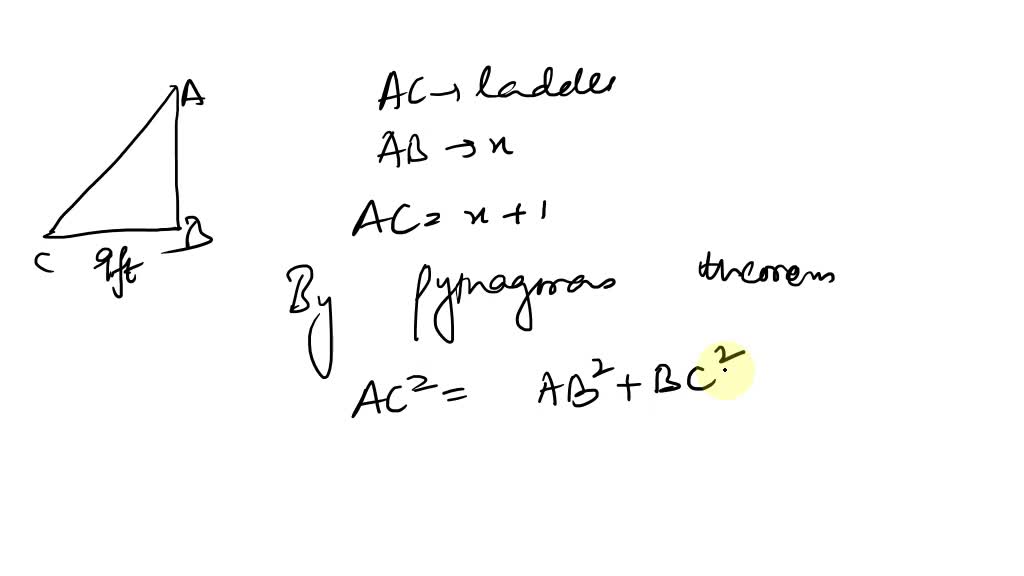 A
B
C 9ft
AC → ladder
AB → x
AC = x + 1
By Pythagoras theorem
AC² = AB² + BC²